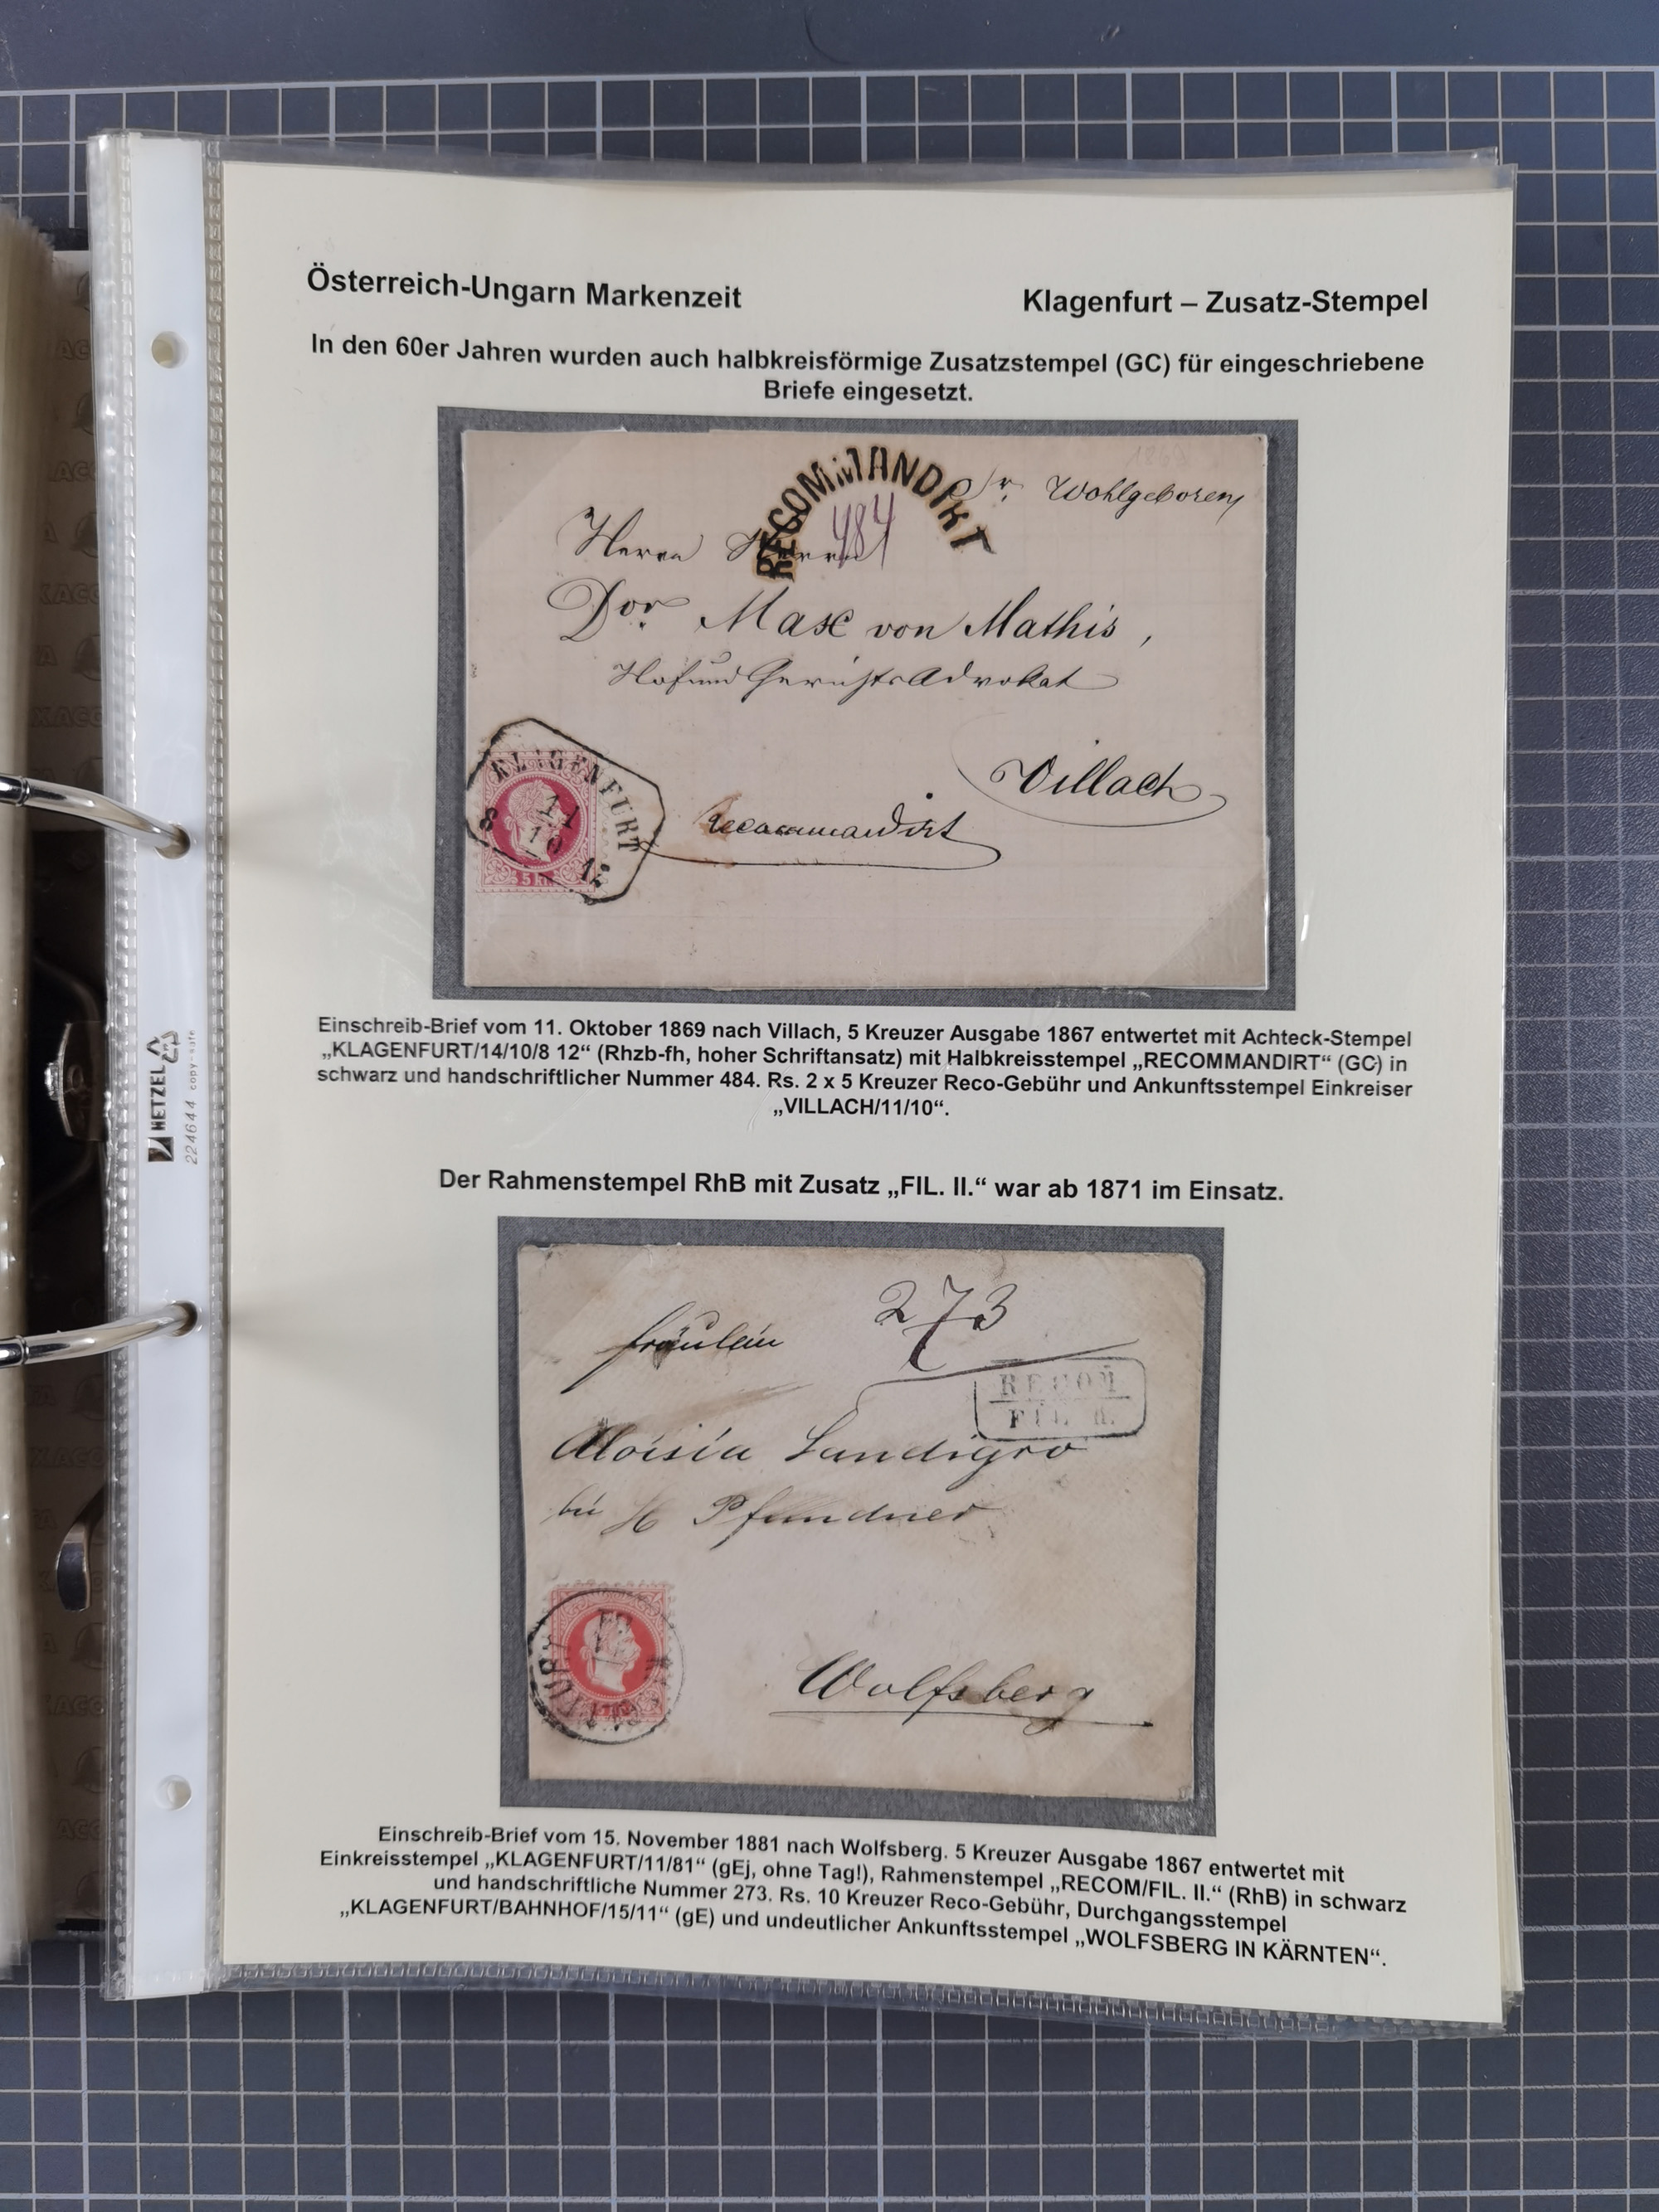 Österreich-Ungarn Markenzeit
Klagenfurt – Zusatz-Stempel
In den 60er Jahren wurden auch halbkreisförmige Zusatzstempel (GC) für eingeschriebene
Briefe eingesetzt.
1869
RECOMMANDIRT
Sr. Wohlgeboren
484
Herrn Herrn
Dor. Max von Mathis,
Hof und Gerichts Advokat
Villach
KLAGENFURT
11
8 10 12
5 kr
Recommandirt
Einschreib-Brief vom 11. Oktober 1869 nach Villach, 5 Kreuzer Ausgabe 1867 entwertet mit Achteck-Stempel
„KLAGENFURT/14/10/8 12“ (Rhzb-fh, hoher Schriftansatz) mit Halbkreisstempel „RECOMMANDIRT“ (GC) in
schwarz und handschriftlicher Nummer 484. Rs. 2 x 5 Kreuzer Reco-Gebühr und Ankunftsstempel Einkreiser
„VILLACH/11/10“.
Der Rahmenstempel RhB mit Zusatz „FIL. II.“ war ab 1871 im Einsatz.
273
fräulein
RECOM
FIL. II.
Aloisia
bei H Pfundner
Wolfsberg
Einschreib-Brief vom 15. November 1881 nach Wolfsberg. 5 Kreuzer Ausgabe 1867 entwertet mit
Einkreisstempel „KLAGENFURT/11/81“ (gEj, ohne Tag!), Rahmenstempel „RECOM/FIL. II.“ (RhB) in schwarz
und handschriftliche Nummer 273. Rs. 10 Kreuzer Reco-Gebühr, Durchgangsstempel
„KLAGENFURT/BAHNHOF/15/11“ (gE) und undeutlicher Ankunftsstempel „WOLFSBERG IN KÄRNTEN“.
HETZEL
224644 copy-safe